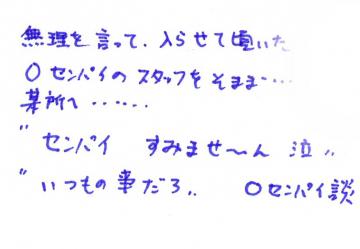 無理を言って、入らせて頂いた
〇センパイのスタッフをそまま‥‥
某所へ‥‥‥
"センパイ　すみませ～ん　泣〃
"いつもの事だろ〃　〇センパイ談